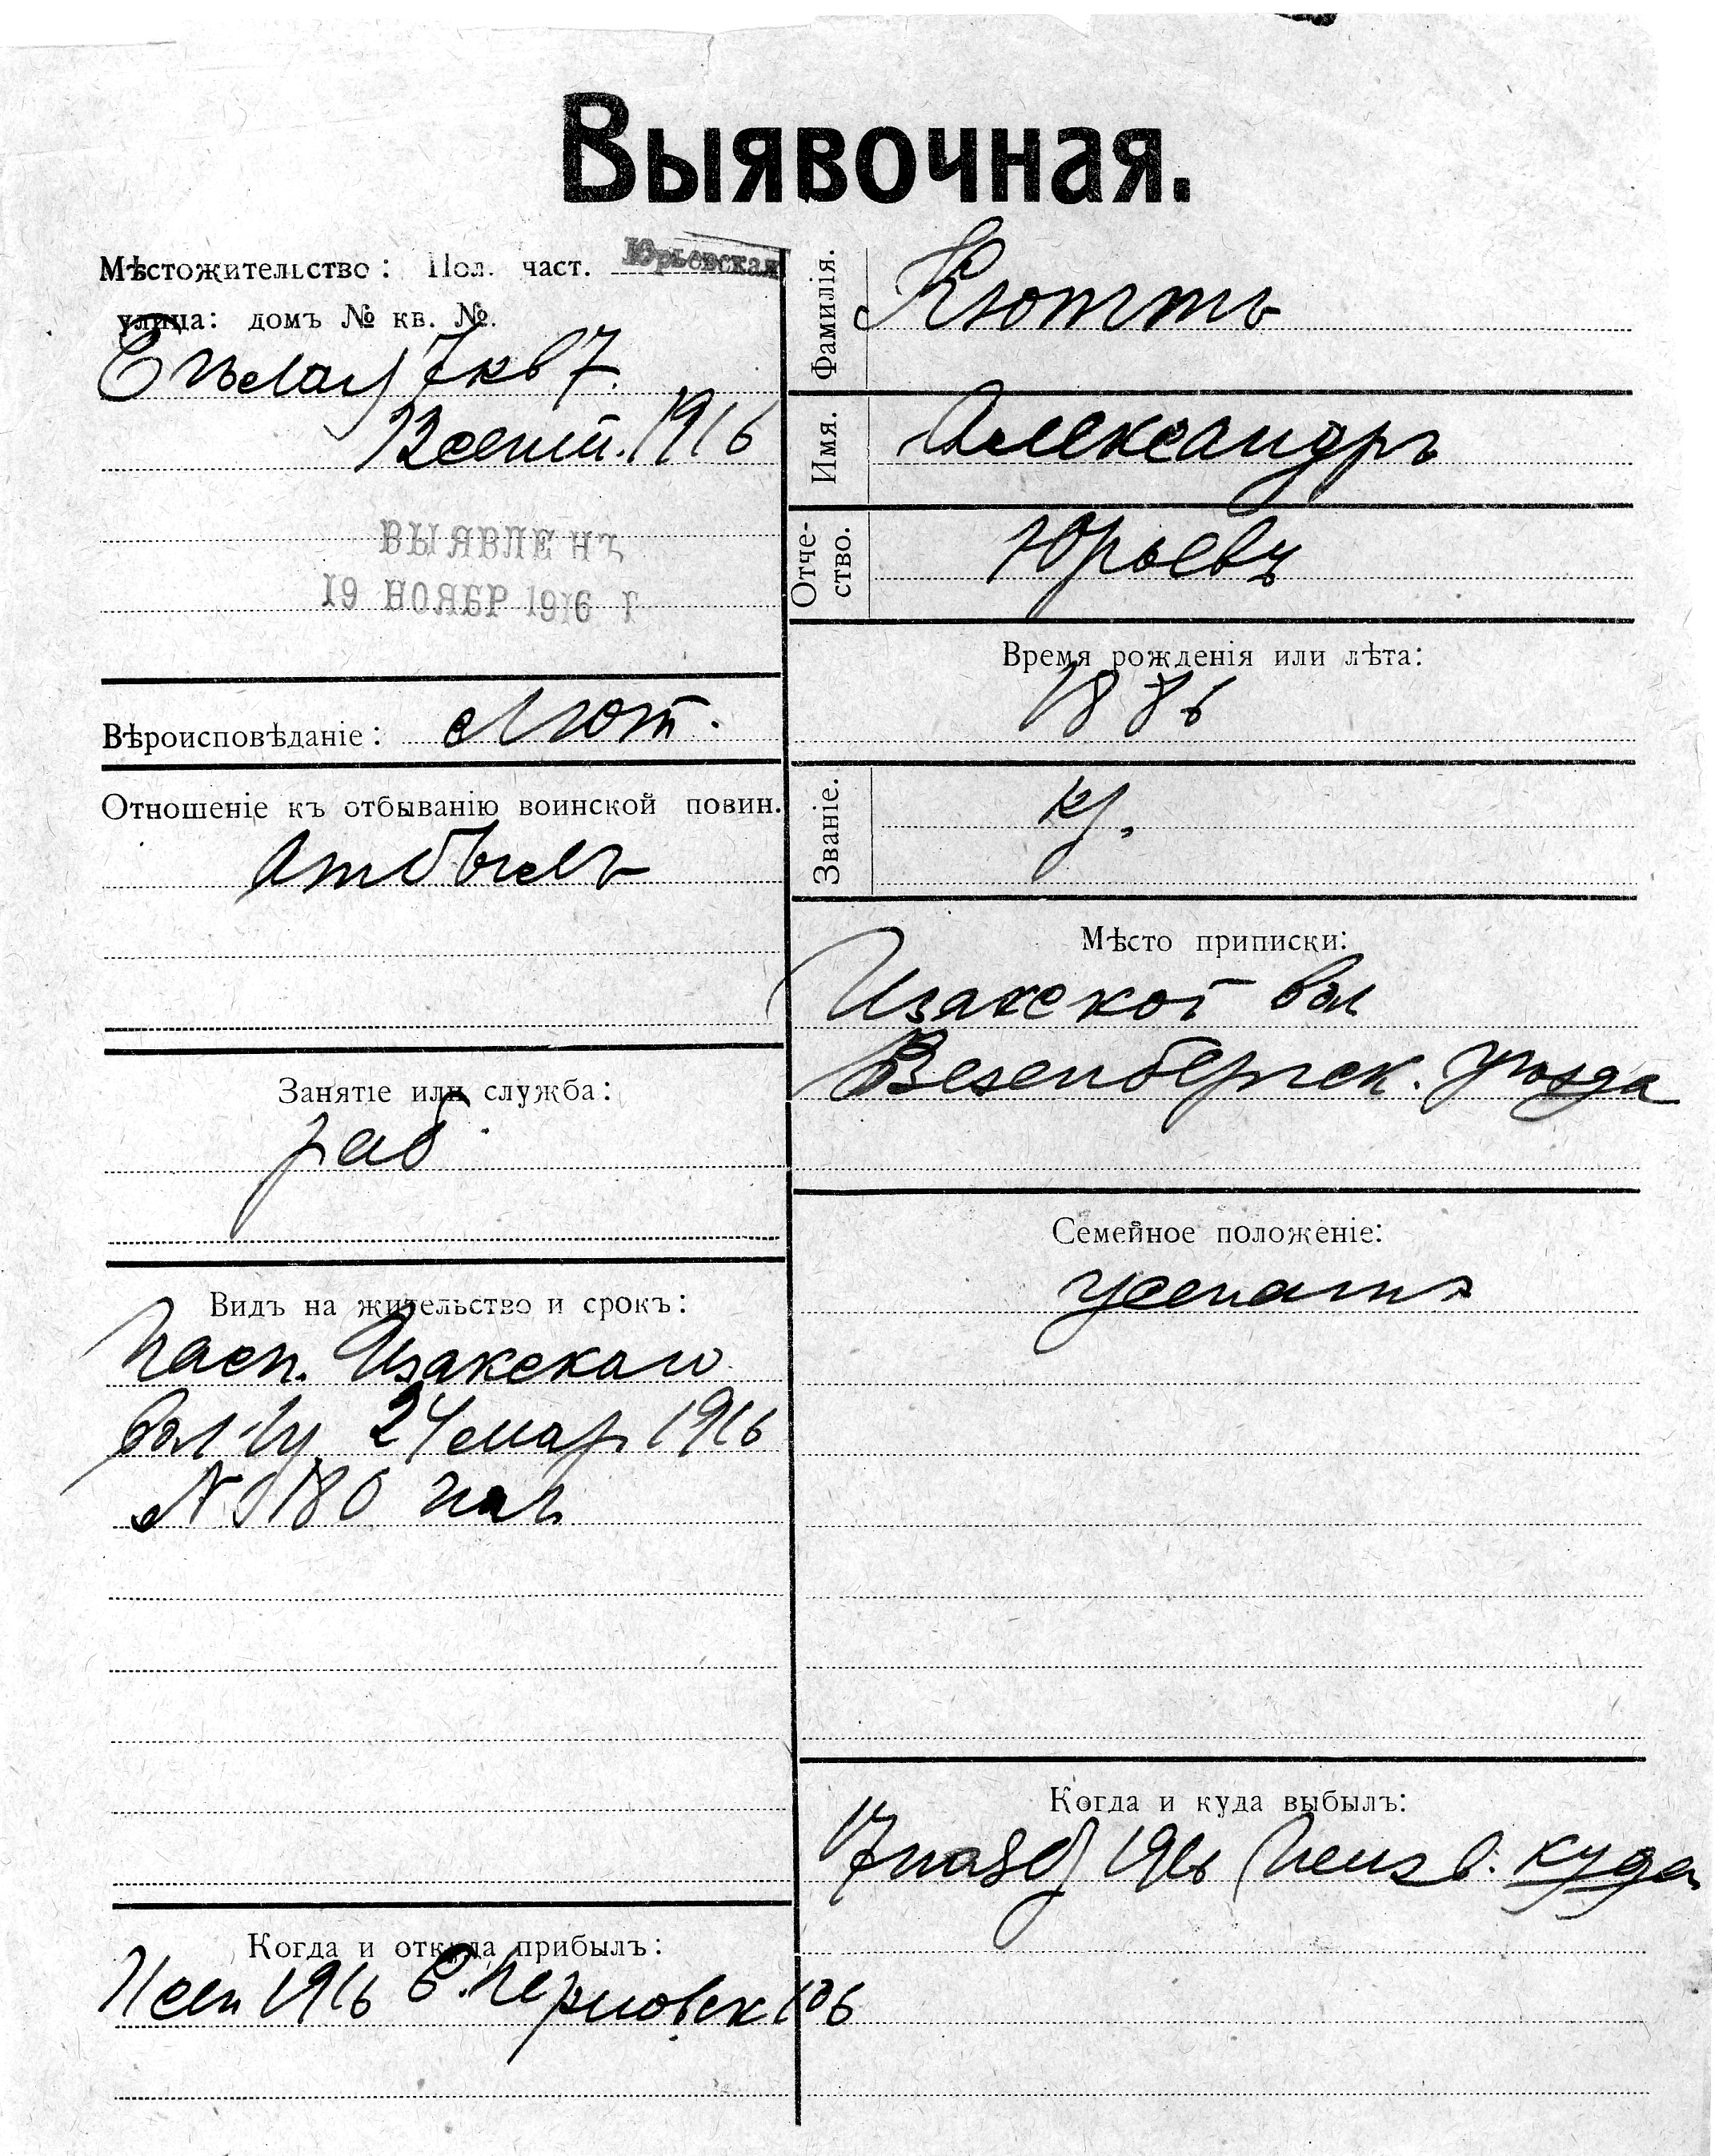 Выявочная.
Мѣстожительство: Пол. част. Юрьевская
улица: домъ № кв. №.
7 кв 7.
1916
ВЫЯВЛЕНЪ
19 НОЯБР 1916 Г
Вѣроисповѣданіе: Лют.
Отношеніе къ отбыванію воинской повин.
Отбылъ
Занятіе или служба:
раб.
Видъ на жительство и срокъ:
Пасп. Изакскаго
вол 24 мар 1916
№ 180
Когда и откуда прибылъ:
1916 Б. Перновск 106
Фамилія. Кюттъ
Имя. Александръ
Отче-
ство. Юрьевъ
Время рожденія или лѣта:
1886
Званіе. кр.
Мѣсто приписки:
Изакской вол
Везенбергск. уѣзда
Семейное положеніе:
женатъ
Когда и куда выбылъ:
17 нояб 1916 Неизв. куда